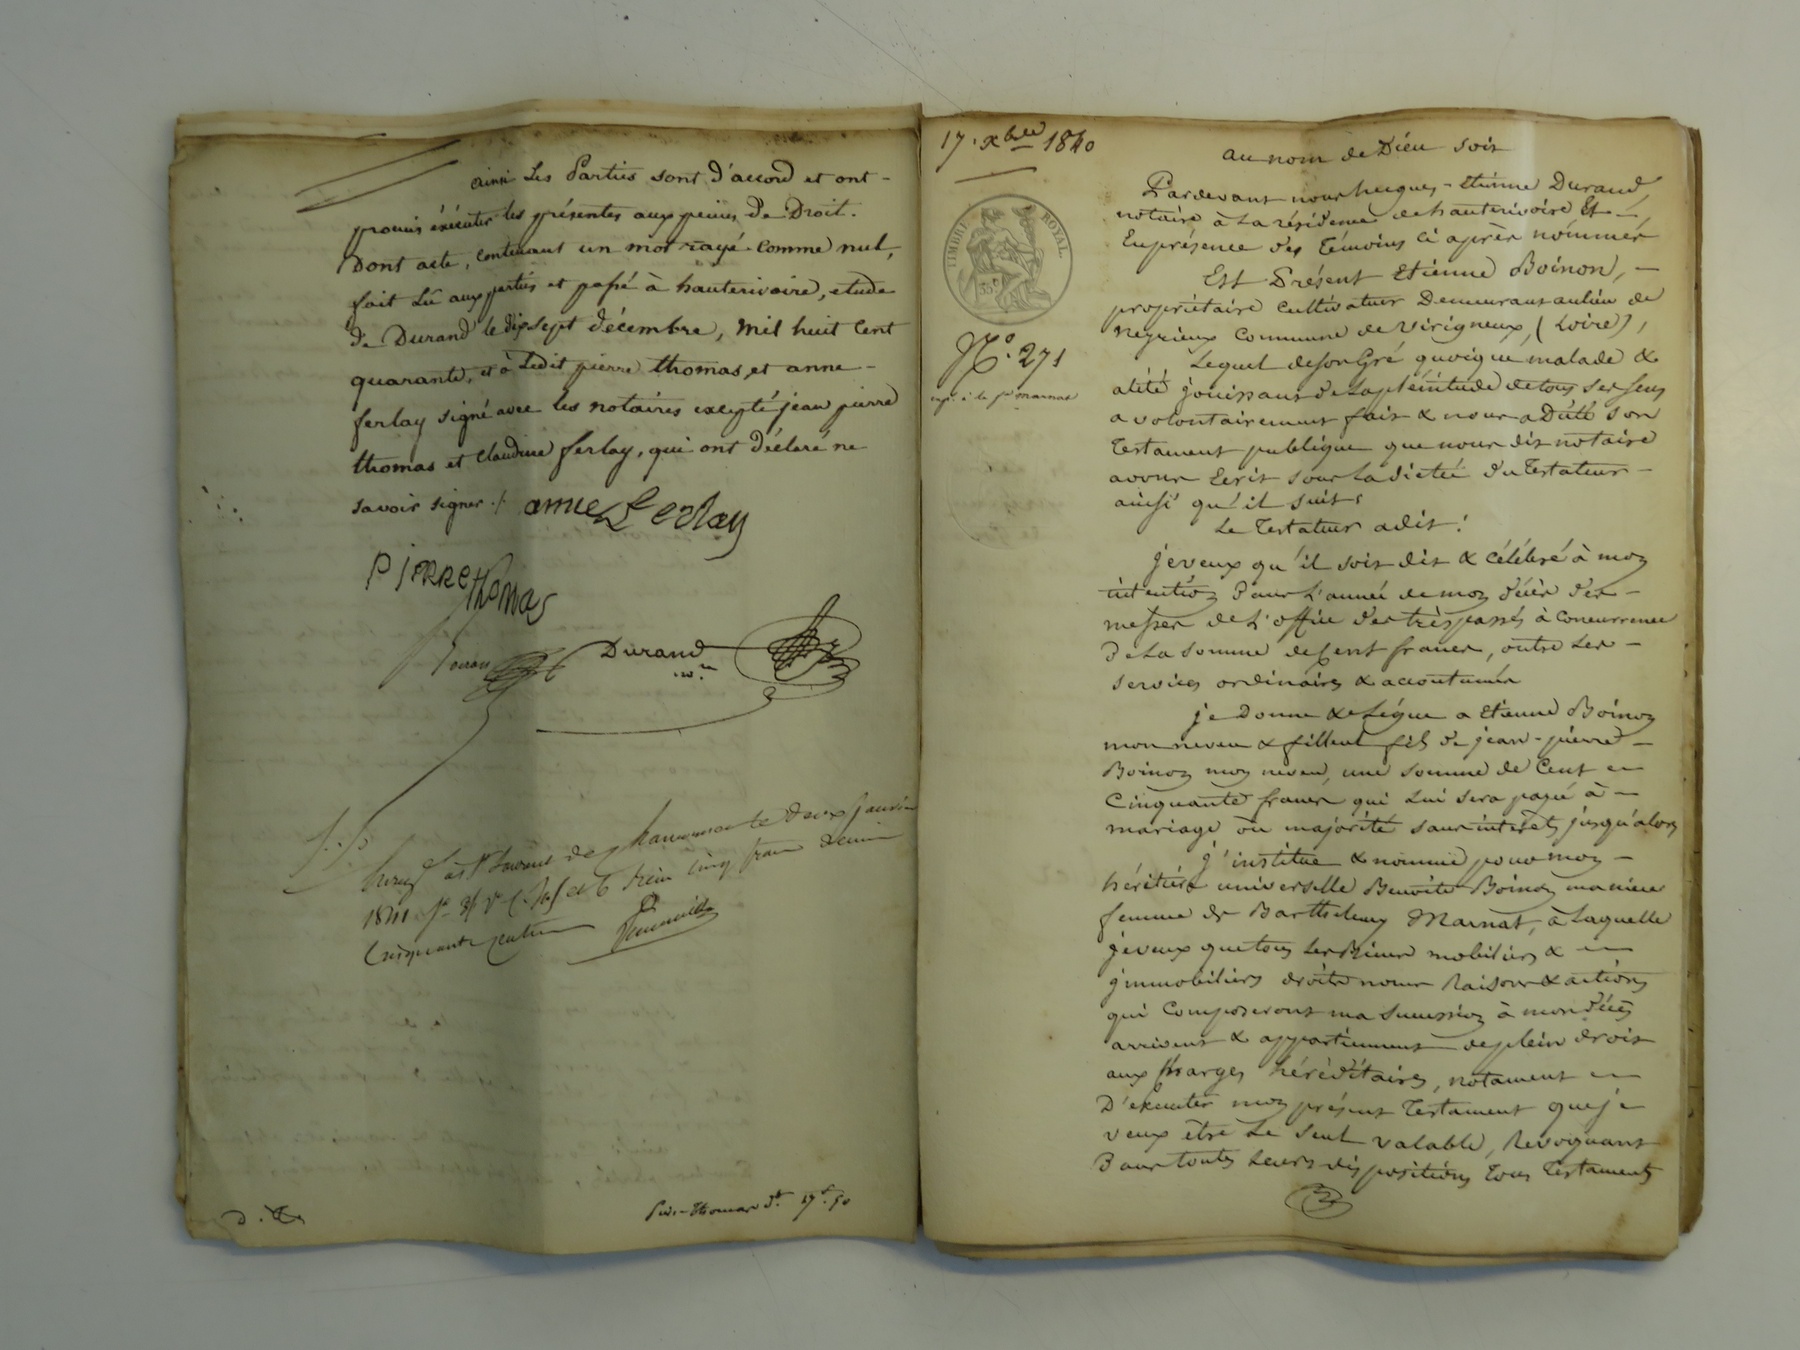 ainsi Les Parties sont d'accord et ont -
promis éxécuter les présentes aux peines de Droit.
Dont acte, contenant un mot rayé comme nul,
fait Lu aux parties et passé à hauterivoire, etude
de Durand le dix sept décembre, mil huit cent
quarante, et à Ledit pierre thomas, et anne -
ferlay signé avec les notaires excepté jean pierre
thomas et Claudine ferlay, qui ont déclaré ne
savoir signer ./.
anne Ferlay
PIERRE thomas
Durand
nre
Enregé à St Laurent de Chamousset le deux janvier
1841 fo
Cinquante centimes
17 f. 50
17. Xbre 1840
TIMBRE ROYAL.
No. 271
exp. à la fe marnat
au nom de Dieu soit
Pardevant nous hugues - Etienne Durand,
notaire à La résidence de hauterivoire Et -,
En présence des Témoins ci après nommés
Est Présent Etienne Boinon, -
propriétaire cultivateur Demeurant au lieu de
Neyrieux Commune de Virigneux, (Loire),
Lequel de son Gré quoique malade &
alité jouissant de La pléintude de tous ses sens
a volontairement fait & nous a Dicté son
Testament publique que nous dit notaire
avons Ecrit sous La dictée du Testateur -
ainsi qu'il suit:
Le Testateur a dit:
je veux qu'il soit dit & célébré à mon
intention Dans L'année de mon décès des -
messes de L'office des trèspassés à Concurrence
De La somme de Cent francs, outre Les -
services ordinaires & accoutumés
je Donne & Lègue a Etienne Boinon
mon neveu & filleul fils de jean - pierre -
Boinon mon neveu, une somme de Cent -
Cinquante francs qui Lui sera payé à -
mariage ou majorité sans intérêts jusqu'alors
j'institue & nomme pour mon -
héritière universelle Benoite Boinon ma nièce
femme de Barthelemy Marnat, à Laquelle
je veux que tous Les Biens mobiliers & -
jmmobiliers droits noms Raisons & actions
qui Composeront ma succession à mon décès
arrivent & appartiennent de plein droit
aux charges héréditaires, notament -
D'exécuter mon présent Testament que je
veux être Le seul valable, Revoquant
Par toutes Leurs dispositions tous Testaments